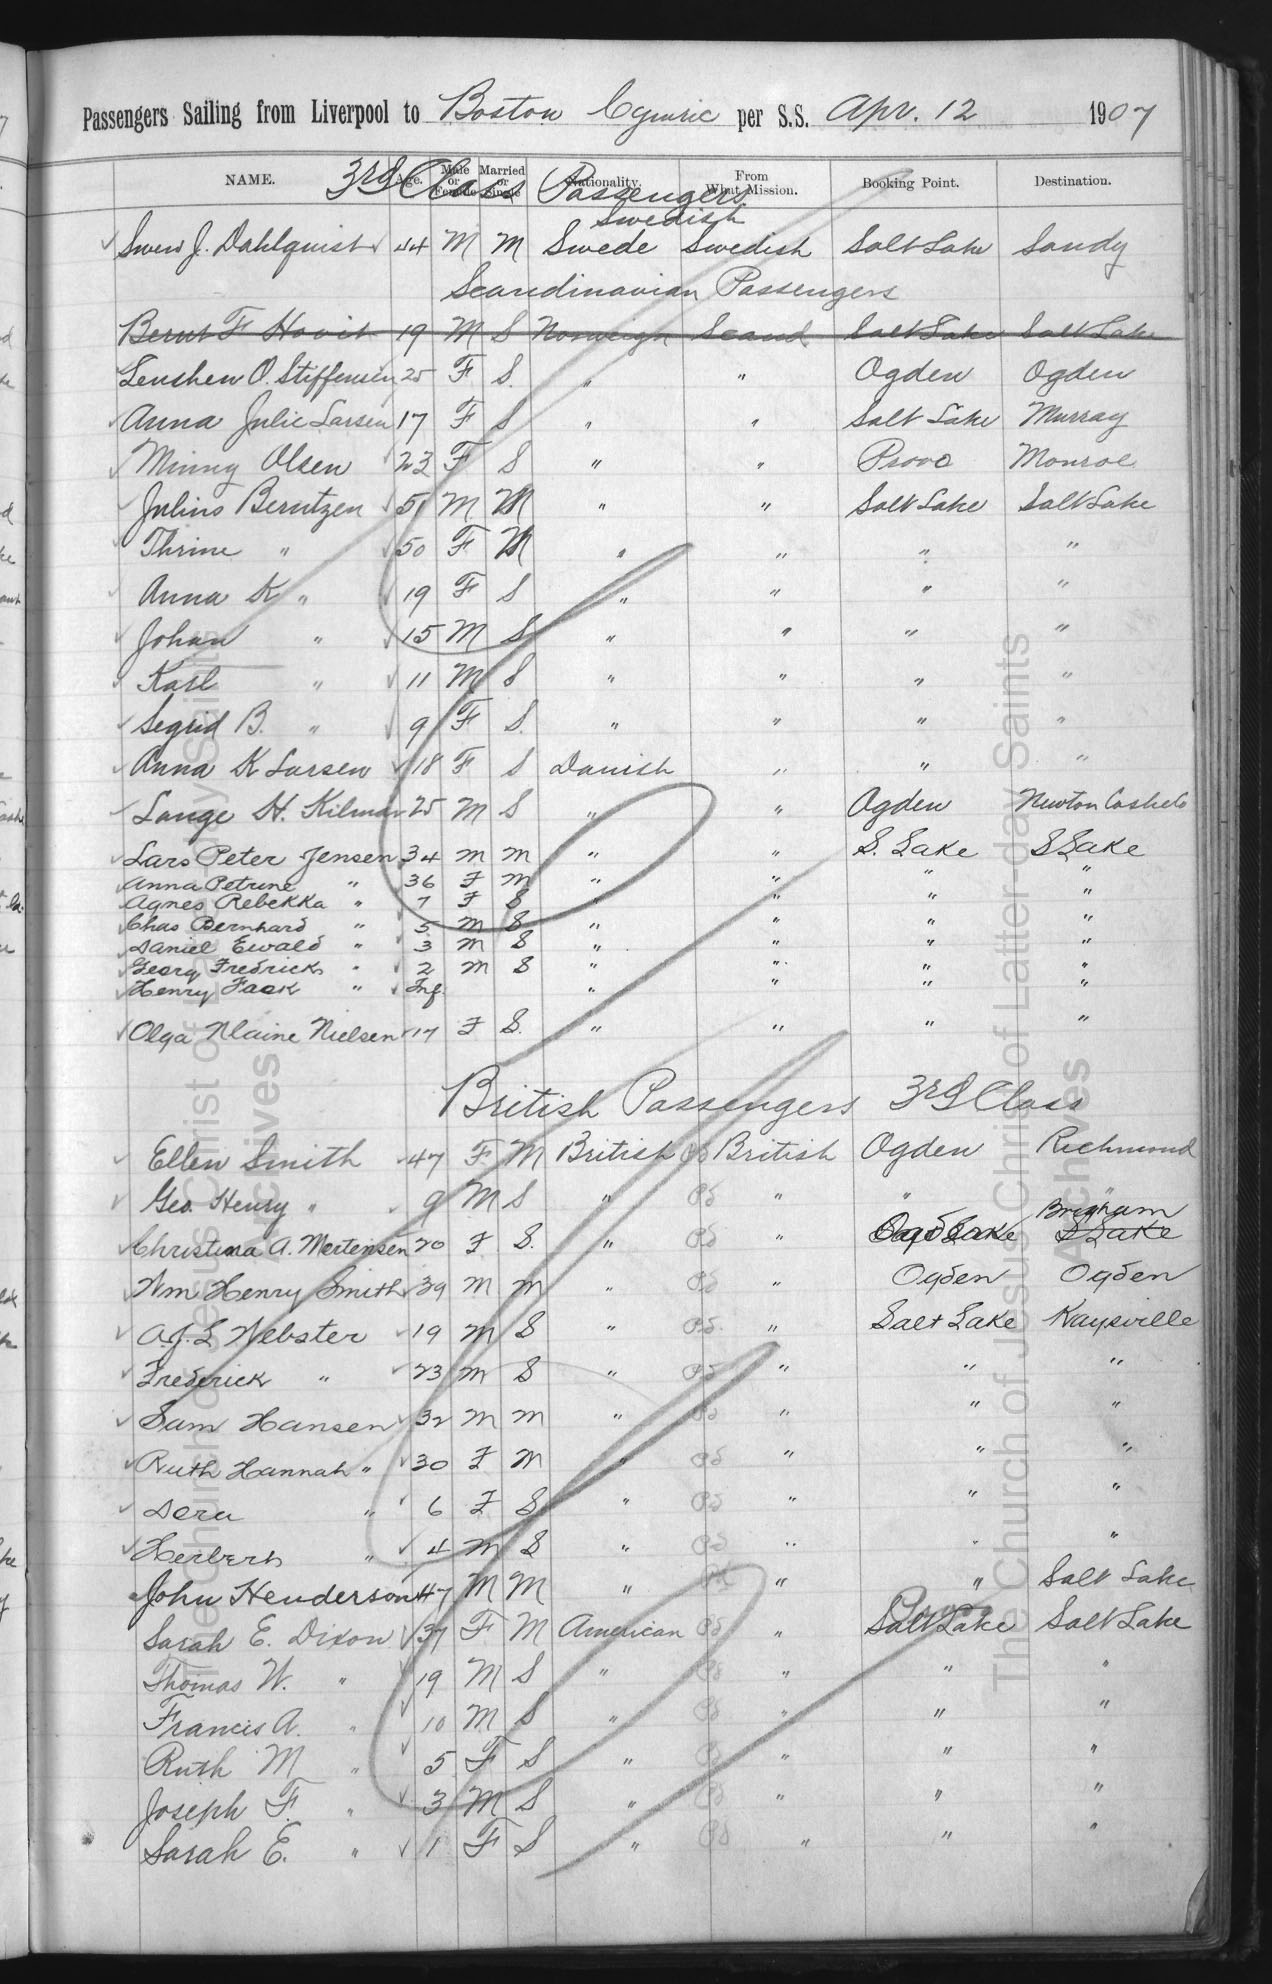 Passengers Sailing from Liverpool to Boston Cymric per S.S. Apr. 12 1907
NAME. Age. Male or Female Married or Single Nationality. From What Mission. Booking Point. Destination.
3rd Class Passengers
Swedish
Swen J. Dahlquist 44 M M Swede Swedish Salt Lake Sandy
Scandinavian Passengers
Bernt F Hovik 19 M S Norweigh Scand Salt Lake Salt Lake
Lenshen O. Stiffensen 25 F S. " " Ogden Ogden
Anna Julie Larsen 17 F S " " Salt Lake Murray
Minny Olsen 23 F S " " Provo Monroe
Julius Berntzen 51 M M " " Salt Lake Salt Lake
Thrine " 50 F M " " " "
Anna K " 19 F S " " " "
Johan " 15 M S " " " "
Karl " 11 M S " " " "
Segrid B. " 9 F S. " " " "
Anna K Larsen 18 F S Danish " " "
Lauge H. Kilmar 25 M S " " Ogden Newton Cache Co
Lars Peter Jensen 34 M M " " S. Lake S Lake
Anna Petrine " 36 F M " " " "
Agnes Rebekka " 7 F S " " " "
Chas Bernhard " 5 M S " " " "
Daniel Ewald " 3 M S " " " "
Georg Fredrick " 2 M S " " " "
Henry Faok " Inf. " " " "
Olga Nlaine Nielsen 17 F S. " " " "
British Passengers 3rd Class
Ellen Smith 47 F M British Pd British Ogden Richmond
Geo. Henry " 9 M S " Pd " " "
Brigham
Christina A. Mortensen 20 F S. " Pd " S Lake
Wm Henry Smith 39 M M " Pd " Ogden Ogden
A.J.L Webster 19 M S " Pd. " Salt Lake Kaysville
Frederick " 23 M S " Pd " " "
Sam Hansen 32 M M " Pd " " "
Ruth Hannah " 30 F M " Pd " " "
Dora " 6 F S " Pd " " "
Herbert " 4 M S " Pd " " "
John Henderson 47 M M " Pd " " Salt Lake
Sarah E. Dixon 37 F M American Pd " Salt Lake Provo Salt Lake
Thomas W. " 19 M S " Pd " " "
Francis A. " 10 M S " Pd " " "
Ruth M " 5 F S " Pd " " "
Joseph F. " 3 M S " Pd " " "
Sarah E. " 1 F S " Pd " " "
The Church of Jesus Christ of Latter-day Saints
Archives
The Church of Jesus Christ of Latter-day Saints
Archives